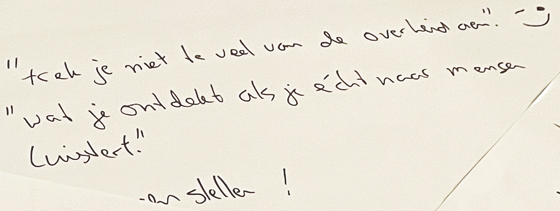 "trek je niet te veel van de overheid aan". :-)
"wat je ontdekt als je écht naar mensen
luistert."
stellen !